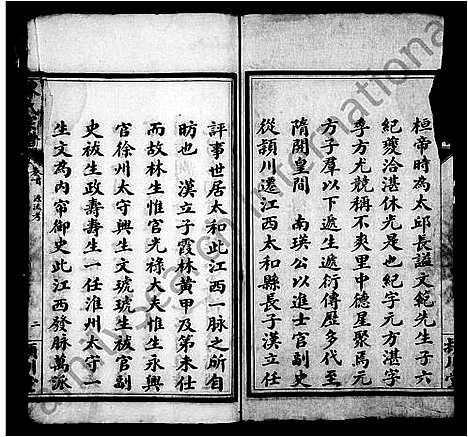 桓帝時為太邱長諡文範先生子六
紀夔洽湛休光是也紀字元方湛字
季方尤競稱不爽里中德星聚焉元
方子羣以下遞生遞衍傳歷多代至
隋開皇間 南瑛公以進士官副史
從頴川遷江西太和縣長子漢立任
評事世居太和此江西一脉之所自
昉也 漢立子霞林黃甲及第未仕
而故林生惟官光祿大夫惟生永興
官徐州太守興生文琥琥生袚官副
史袚生政壽壽生一任淮州太守一
生文為内帘御史此江西發脉萬派
卷首 源流考
二
頴川堂
International